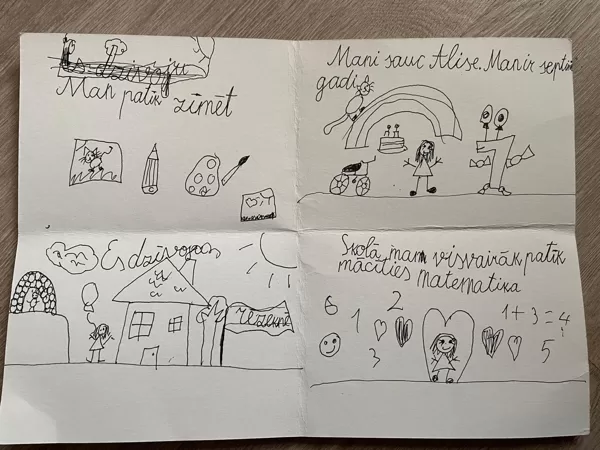 Es dzīvoju
Man patīk zīmēt
Mani sauc Alise. Man ir septiņi
gadi.
7
Es dzīvoju
Rēzeknē
Skolā man visvairāk patīk
mācīties matemātika
6 1 2 3
1+3=4
5